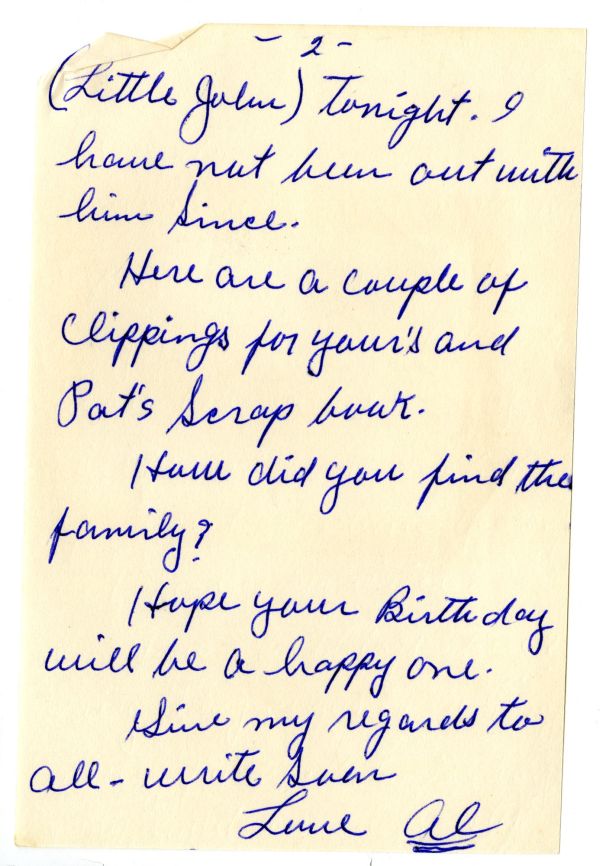 - 2 -
(Little John) tonight. I
have not been out with
him since.
Here are a couple of
Clippings for your's and
Pat's Scrap book.
How did you find the
family?
Hope your Birthday
will be a happy one.
Give my regards to
all - write soon
Love Al